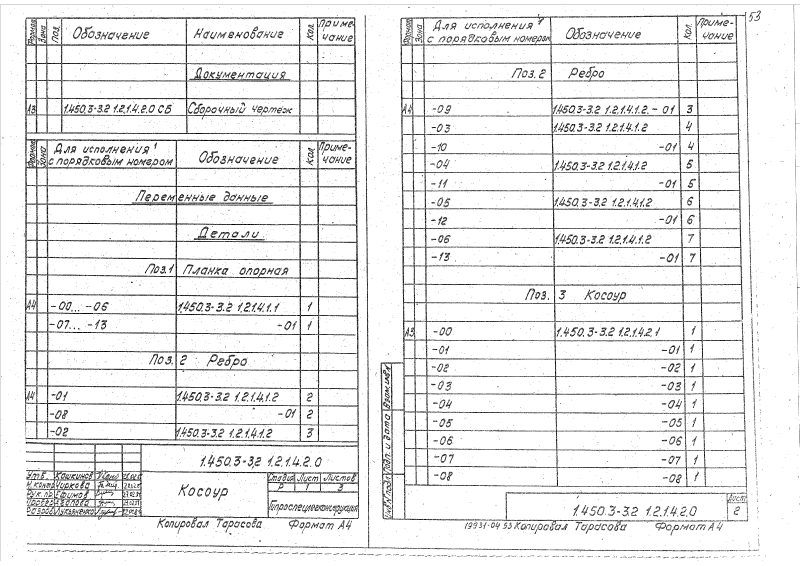 Формат Зона Поз. Обозначение Наименование Кол. Приме-
чание
Документация
А3 1.450.3-3.2 1.2.1.4.2.0 СБ Сборочный чертеж
Формат Зона Для исполнения 1 Обозначение Кол. Приме-
с порядковым номером чание
Переменные данные
Детали
Поз.1 Планка опорная
А4 -00... -06 1.450.3-3.2 1.2.1.4.1.1 1
-07... -13 -01 1
Поз. 2 Ребро
А4 -01 1.450.3-3.2 1.2.1.4.1.2 2
-08 -01 2
-02 1.450.3-3.2 1.2.1.4.1.2 3
1.450.3-3.2 1.2.1.4.2.0
Утв. Кашкинов
Н.контр Чиркова
Рук.пр. Ефимов
Разраб Лукьяненко
Косоур
Стадия Лист Листов
Р 1 3
Гипроспецлегконструкция
Копировал Тарасова Формат А4
53
Формат Зона Для исполнения 1 Обозначение Кол. Приме-
с порядковым номером чание
Поз. 2 Ребро
А4 -09 1.450.3-3.2 1.2.1.4.1.2. - 01 3
-03 1.450.3-3.2 1.2.1.4.1.2 4
-10 -01 4
-04 1.450.3-3.2 1.2.1.4.1.2 5
-11 -01 5
-05 1.450.3-3.2 1.2.1.4.1.2 6
-12 -01 6
-06 1.450.3-3.2 1.2.1.4.1.2 7
-13 -01 7
Поз. 3 Косоур
А3 -00 1.450.3-3.2 1.2.1.4.2.1 1
-01 -01 1
-02 -02 1
-03 -03 1
-04 -04 1
-05 -05 1
-06 -06 1
-07 -07 1
-08 -08 1
Инв.№ подл. Подп. и дата Взам.инв.№
1.450.3-3.2 1.2.1.4.2.0
Лист
2
19931-04 53 Копировал Тарасова Формат А4